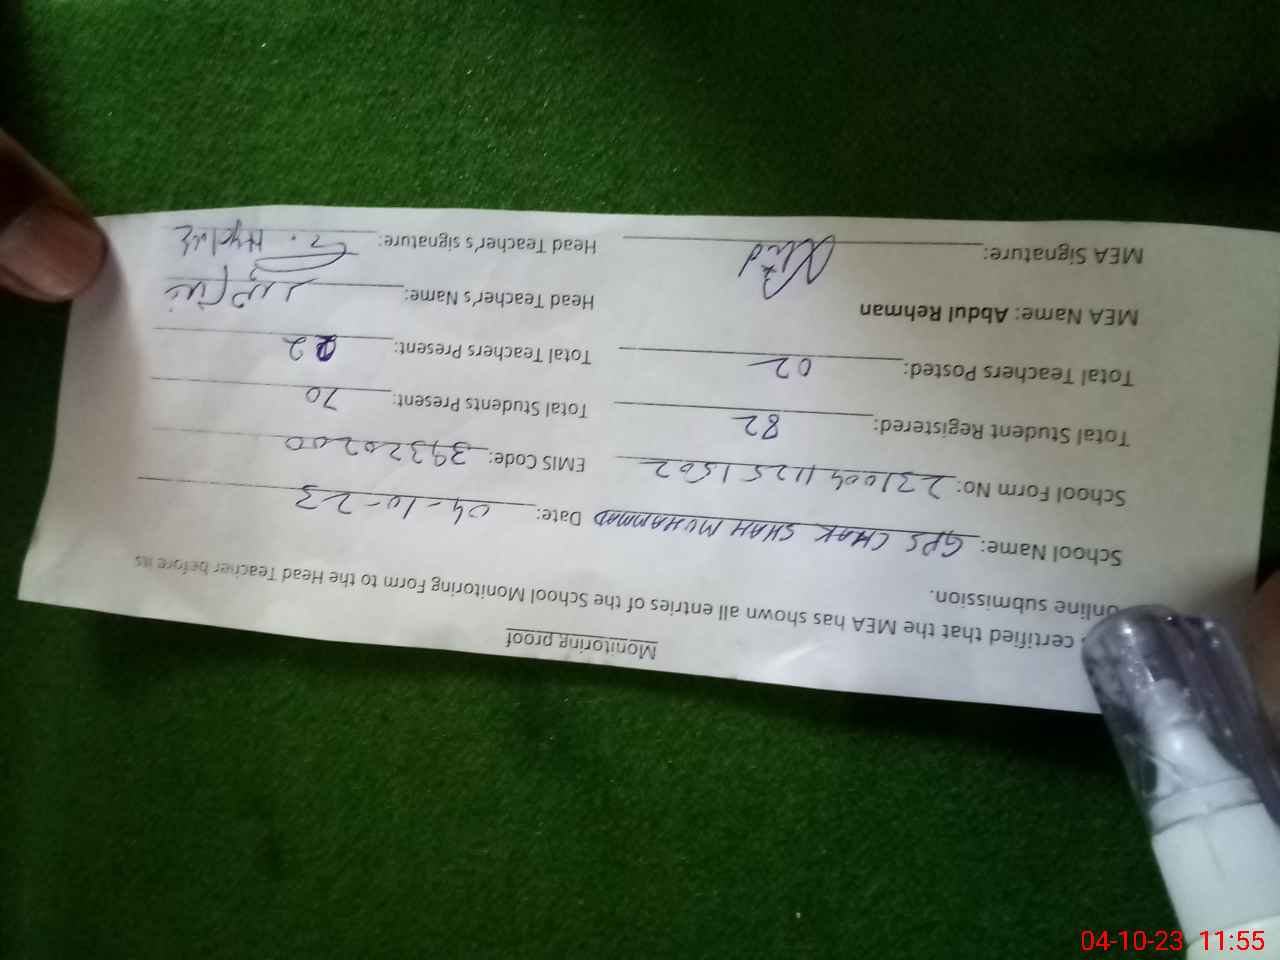 Monitoring proof
certified that the MEA has shown all entries of the School Monitoring Form to the Head Teacher before its
online submission.
School Name: GPS CHAK SHAH MUHAMMAD Date: 04-10-23
School Form No: 23100411251502 EMIS Code: 39320200
Total Student Registered: 82 Total Students Present: 70
Total Teachers Posted: 02 Total Teachers Present: 2
MEA Name: Abdul Rehman Head Teacher's Name:
MEA Signature: Head Teacher's signature:
04-10-23 11:55